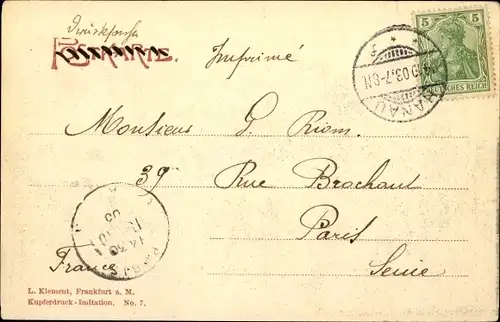 Drucksache
Imprimé
5 5
DEUTSCHES REICH
HANAU
03.7-8N
Monsieur G. Riom.
39 Rue Brochant
Paris
France Seine
PARIS
14 30
03
L. Klement, Frankfurt a. M.
Kupferdruck-Imitation. No. 7.